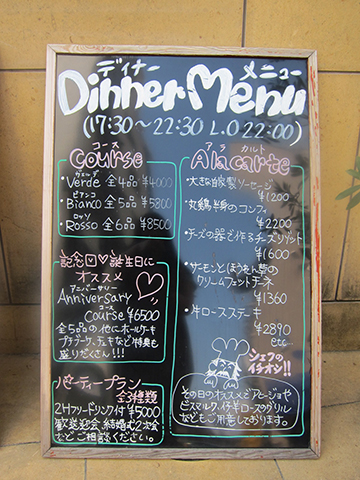 ディナー メニュー
Dinner Menu
(17:30〜22:30 L.O 22:00)
コース
Course
ヴェルデ
・Verde 全4品 ¥4000
ビアンコ
・Bianco 全5品 ¥5800
ロッソ
・Rosso 全6品 ¥8500
記念日♡誕生日に
オススメ
アニバーサリー
Anniversary
コース
Course ¥6500
全5品の他にホールケーキ
プチブーケ、デキャなど特典も
盛りだくさん!!!
パーティープラン
全3種類
2Hフリードリンク付 ¥5000
歓送迎会、結婚式2次会
などご相談ください。
アラ カルト
A la carte
・大きな自家製ソーセージ
¥1200
・丸鶏半身のコンフィ
¥2200
・チーズの器で作るチーズリゾット
¥1600
・サーモンとほうれん草の
クリームフェットチーネ
¥1360
・牛ロースステーキ
¥2890
etc
シェフの
イチオシ!!
その日のオススメでアヒージョや
ビスマルク、仔羊ロースのグリル
などもご用意しております。